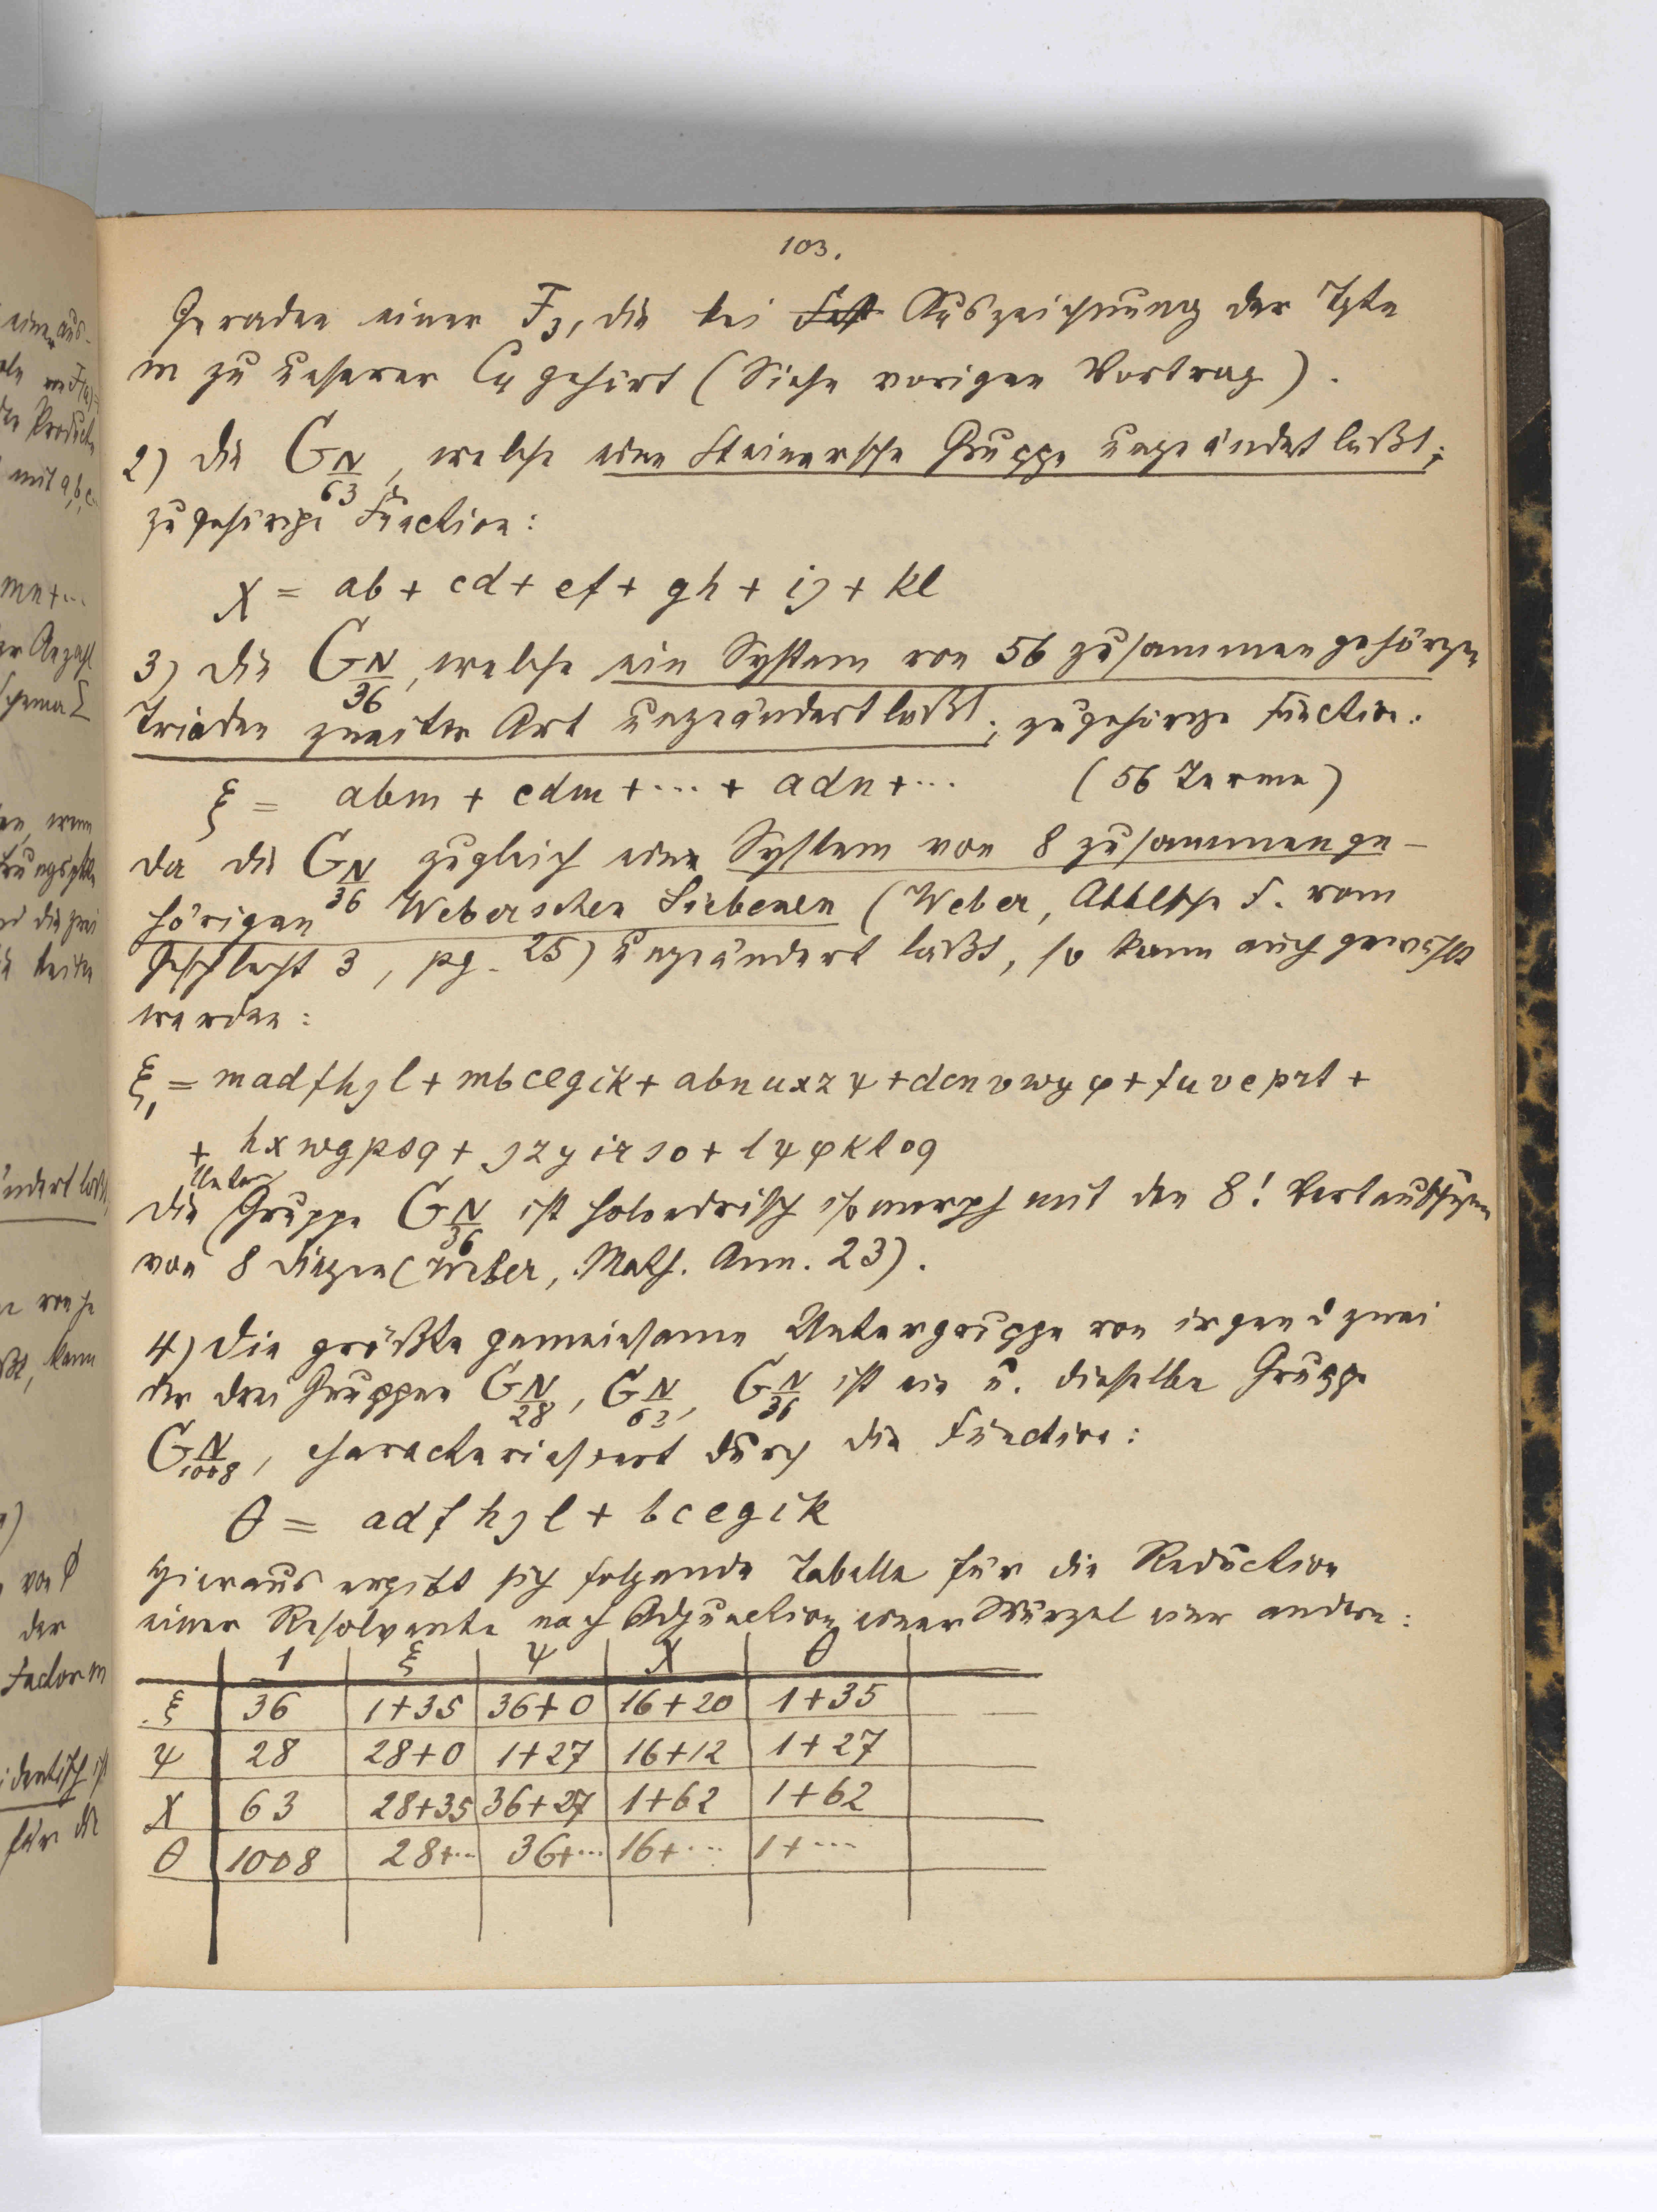 103.
Geraden einer F3, die bei Fest Auszeichnung der Tgte
m zu unserer C4 gehört (Siehe vorigen Vortrag).
2) Die G N/63, welche eine Steinersche Gruppe ungeändert läßt;
zugehörige Function:
χ = ab + cd + ef + gh + ij + kl
3) Die G N/36, welche ein System von 56 zusammengehörgen
Triaden zweiter Art ungeändert läßt; zugehörge Function:
ξ = abm + cdm + ··· + adn + ··· (56 Terme)
Da die G N/36 zugleich ein System von 8 zusammenge-
hörigen Weberschen Siebenen (Weber, Abblsche F. vom
Geschlecht 3, pg. 25) ungeändert läßt, so kann auch gewählt
werden:
ξ1 = madfhjl + mbcegik + abnuxzψ + dcnvwyφ + fuveprt +
+ hxwgpsq + jzyirso + lψφktoq
Die Unter Gruppe G N/36 ist holoedrisch isomorph mit den 8! Vertauschgen
von 8 Dingen (Weber, Math. Ann. 23).
4) Die größte gemeinsame Untergruppe von irgend zwei
der drei Gruppen G N/28, G N/63, G N/36 ist ein u. dieselbe Gruppe
G N/1008, characterisiert durch die Function:
θ = adfhjl + bcegik
Hieraus ergibt sich folgende Tabelle für die Reduction
einer Resolvente nach Adjunction einer Wurzel einer andern:
1 ξ ψ χ θ
ξ 36 1+35 36+0 16+20 1+35
ψ 28 28+0 1+27 16+12 1+27
χ 63 28+35 36+27 1+62 1+62
θ 1008 28+··· 36+··· 16+··· 1+···